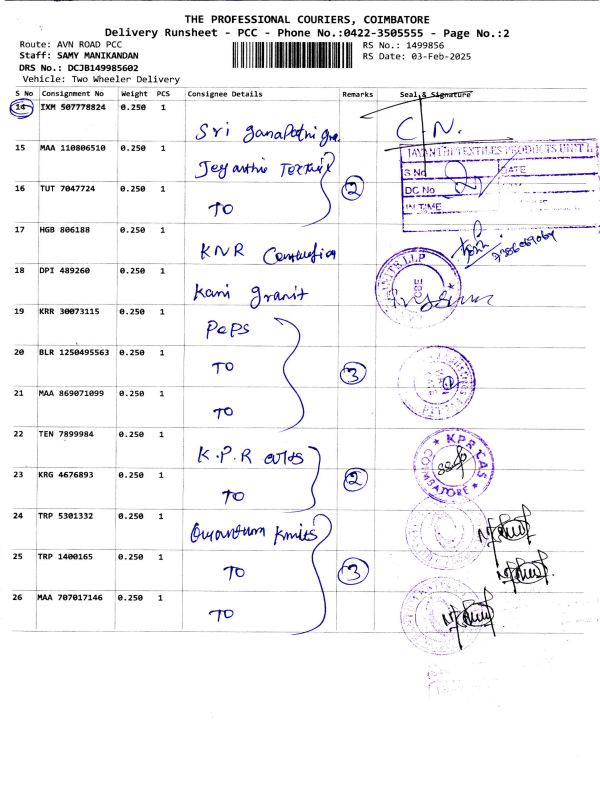 THE PROFESSIONAL COURIERS, COIMBATORE
Delivery Runsheet - PCC - Phone No.:0422-3505555 - Page No.:2
Route: AVN ROAD PCC RS No.: 1499856
Staff: SAMY MANIKANDAN RS Date: 03-Feb-2025
DRS No.: DCJB149985602
Vehicle: Two Wheeler Delivery
S No Consignment No Weight PCS Consignee Details Remarks Seal & Signature
14 IXM 507778824 0.250 1 Sri Ganapathi C.N.
15 MAA 110806510 0.250 1 Jeyanthi 2
JAYANTHI TEXTILES PRODUCTS UNIT
S No DATE
DC No
IN TIME
16 TUT 7047724 0.250 1 TO
17 HGB 806188 0.250 1 KNR
18 DPI 489260 0.250 1 Kani granit
19 KRR 30073115 0.250 1 PePS
20 BLR 1250495563 0.250 1 TO 3
21 MAA 869071099 0.250 1 TO
22 TEN 7899984 0.250 1 K.P.R
KPR CAS
COIMBATORE
23 KRG 4676893 0.250 1 TO 2
24 TRP 5301332 0.250 1 Quantum Knits
25 TRP 1400165 0.250 1 TO 3
26 MAA 707017146 0.250 1 TO